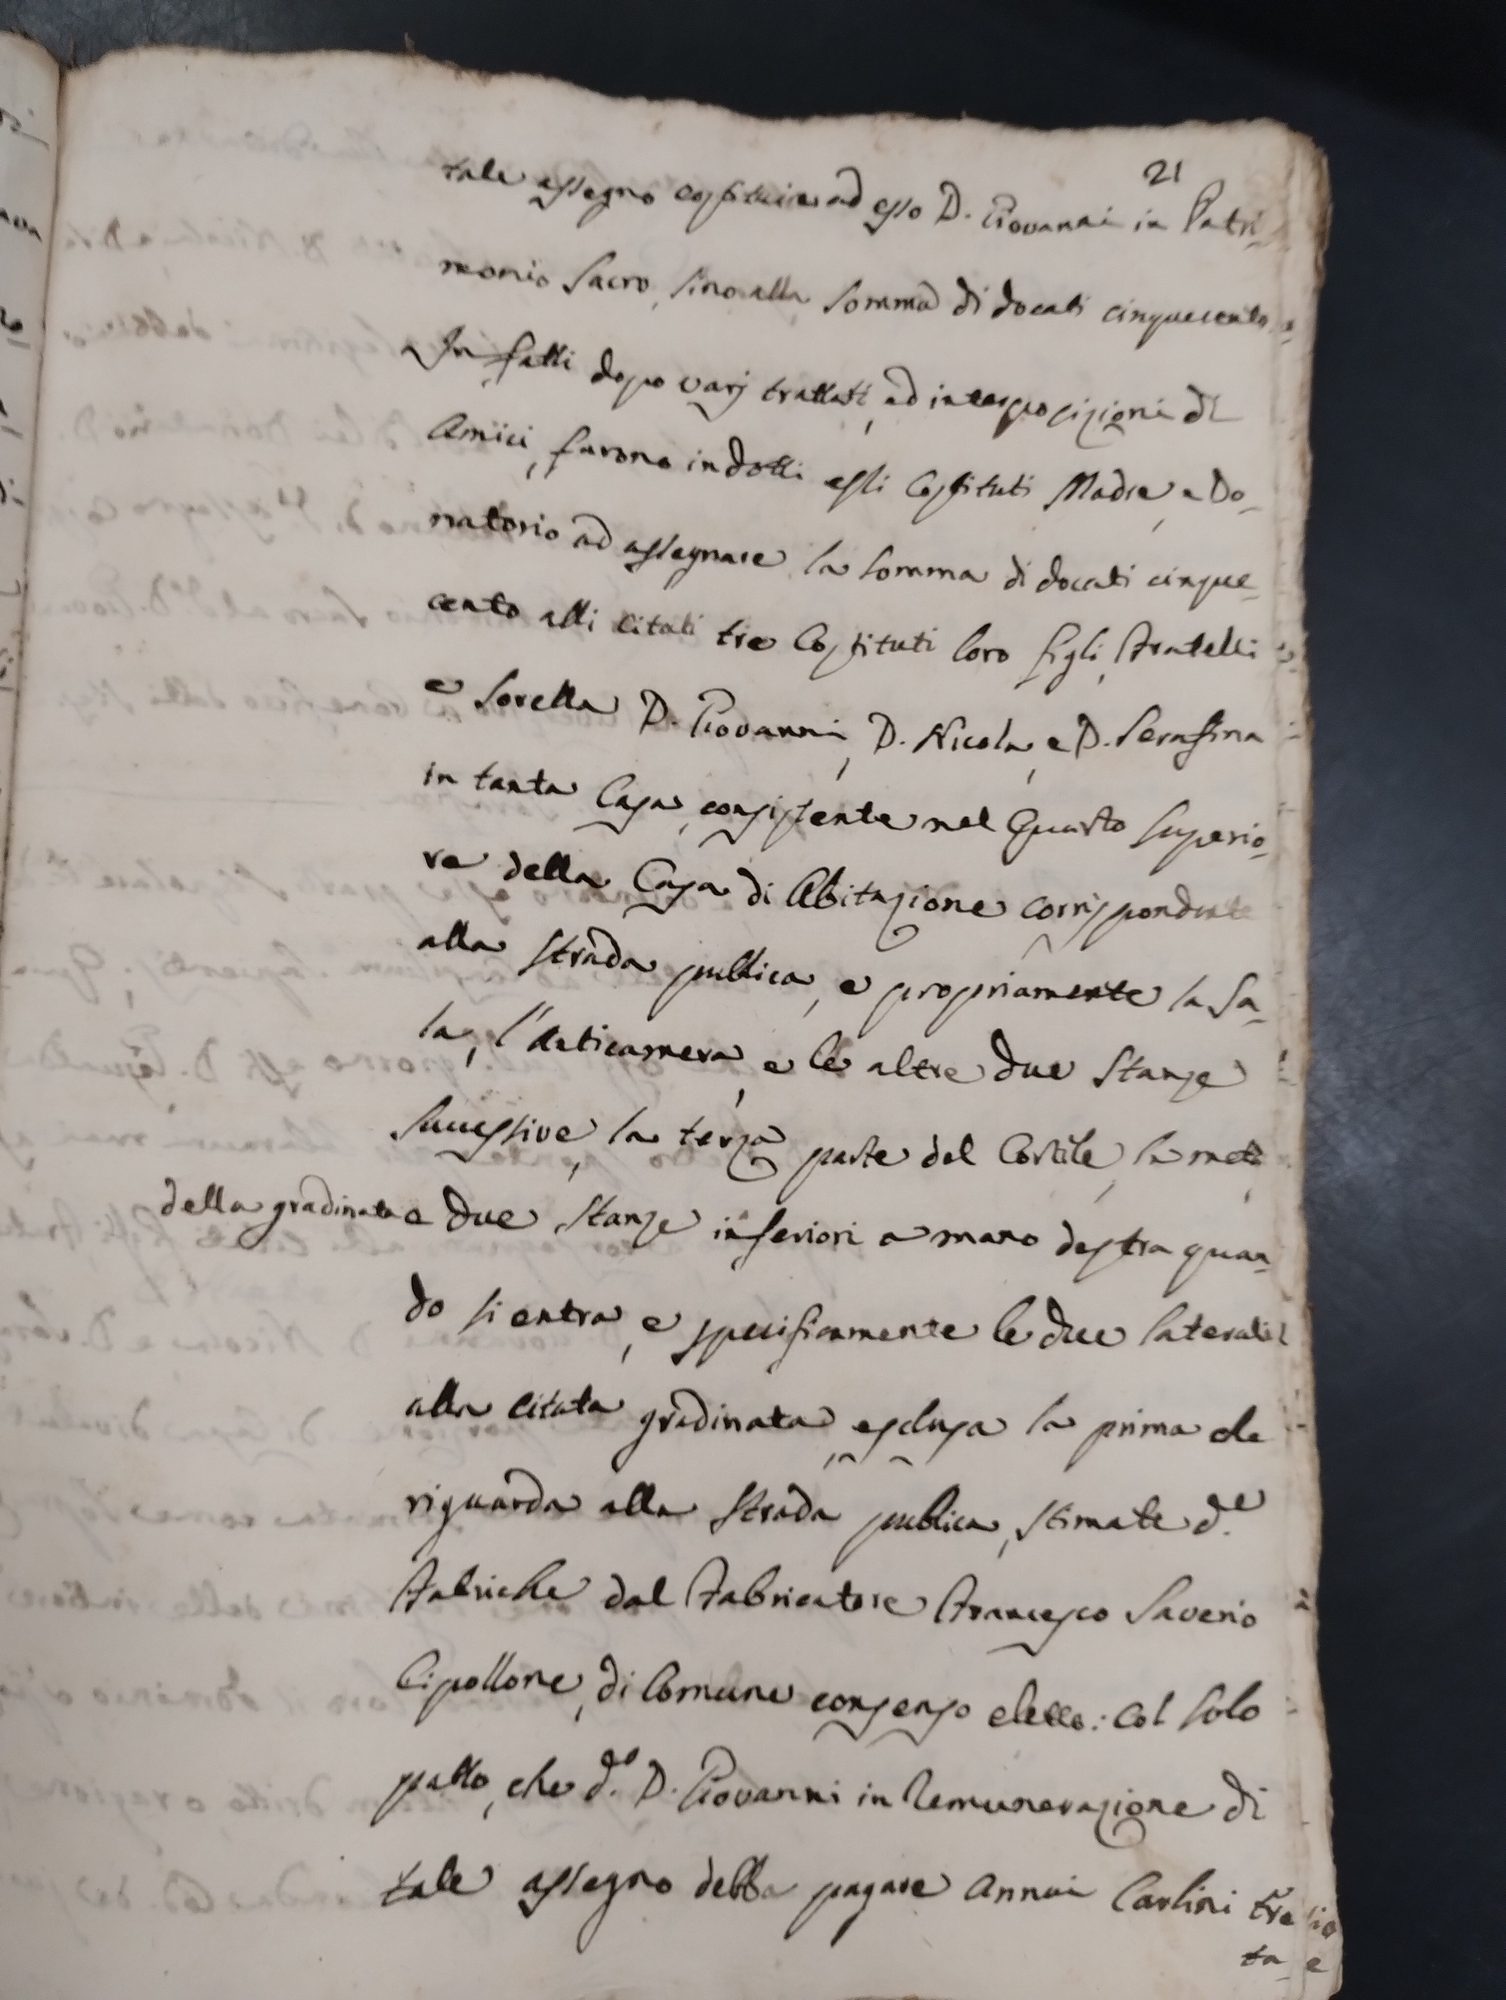 21
tale assegno costituire ad esso D. Giovanni in Patri-
monio Sacro, sino alla somma di docati cinquecento.
In fatti dopo varj trattati, ed interposizioni di
Amici, furono indotti essi Costituti Madre, e Do-
natorio ad assegnare la somma di docati cinque-
cento alli citati tre Costituti loro figli, Fratelli
e Sorella D. Giovanni, D. Nicola, e D. Serafina
in tanta Casa, consistente nel Quarto superio-
re della Casa di Abitazione corrispondente
alla strada publica, e propriamente la Sa-
la, l'Anticamera, e le altre due stanze
successive, la terza parte del Cortile, la metà
della gradinata e due stanze inferiori a mano destra quan-
do si entra, e specificamente le due laterali
alla citata gradinata, esclusa la prima che
riguarda alla strada publica, stimate d.e
Fabriche dal Fabricatore Francesco Saverio
Cipollone, di Comune consenso eletto: col solo
patto, che d.o D. Giovanni in remunerazione di
tale assegno debba pagare annui Carlini tren
ta